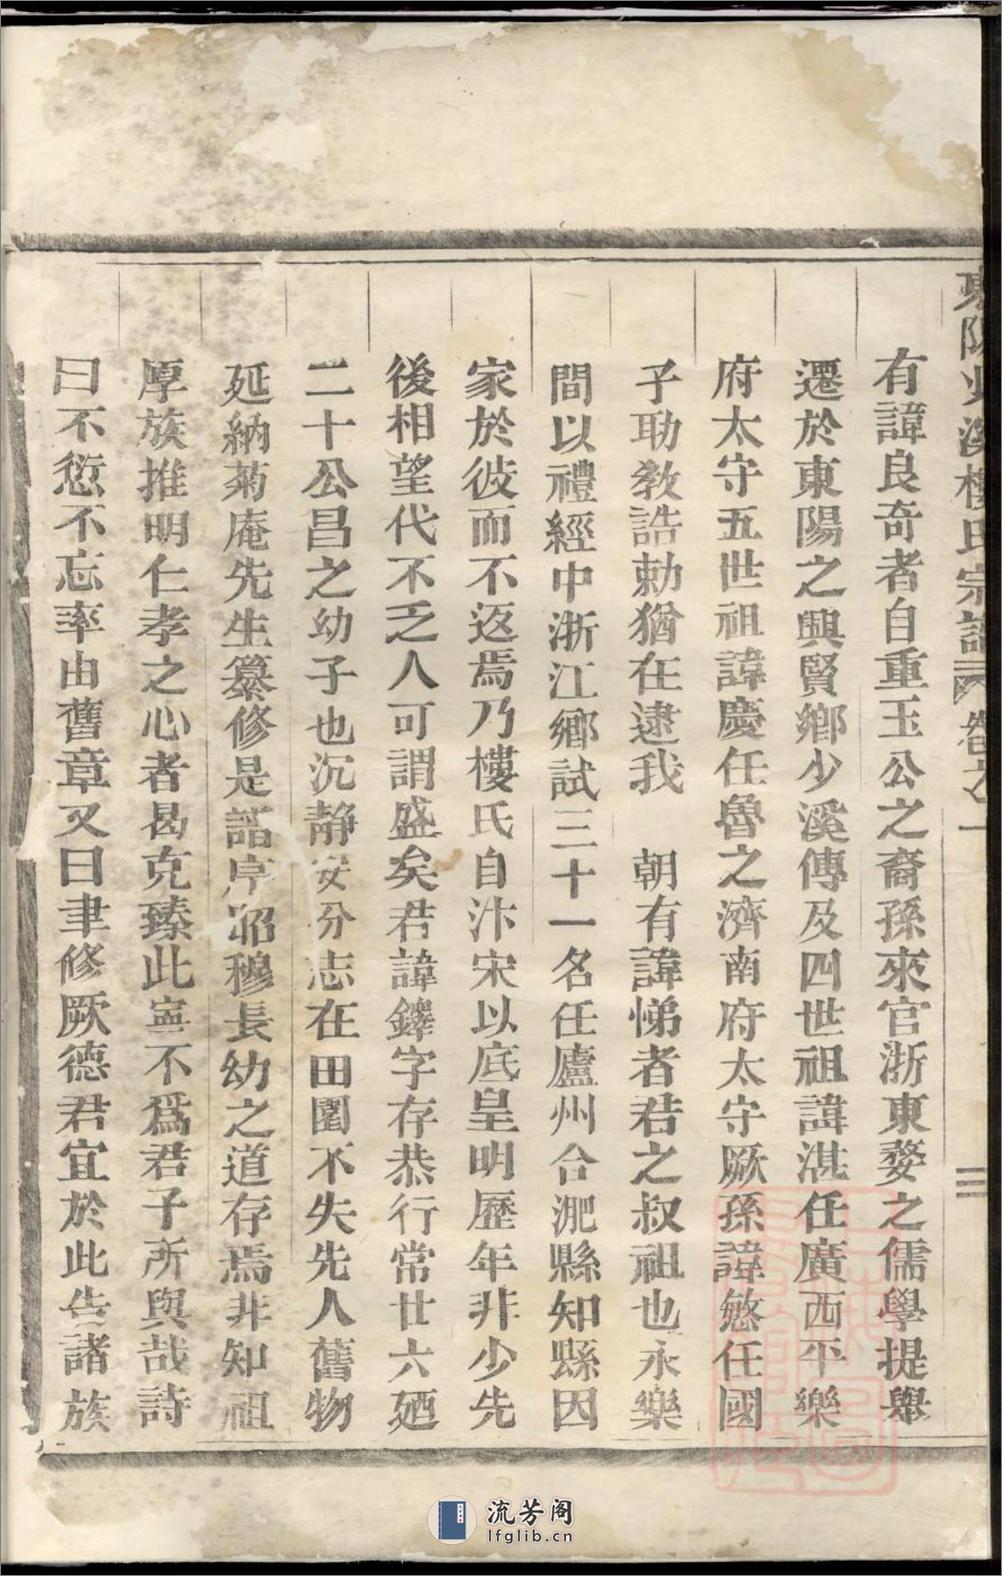 東陽少溪樓氏宗譜 卷之一 三
有諱良奇者自重玉公之裔孫來官浙東婺之儒學提舉
遷於東陽之興賢鄉少溪傳及四世祖諱湛任廣西平樂
府太守五世祖諱慶任魯之濟南府太守厥孫諱慜任國
子助敎誥勅猶在逮我 朝有諱悌者君之叔祖也永樂
間以禮經中浙江鄉試三十一名任廬州合淝縣知縣因
家於彼而不返焉乃樓氏自汴宋以底皇明歷年非少先
後相望代不乏人可謂盛矣君諱鐸字存恭行常廿六廼
二十公昌之幼子也沉静安分志在田園不失先人舊物
延納菊庵先生纂修是譜序昭穆長幼之道存焉非知祖
厚族推明仁孝之心者曷克臻此寧不爲君子所與哉詩
曰不愆不忘率由舊章又曰聿修厥德君宜於此告諸族
流芳阁
lfglib.cn